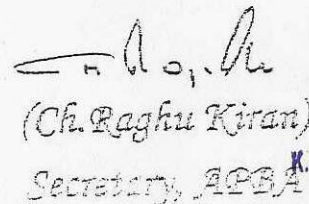 (Ch.Raghu Kiran)
Secretary, APBA
K.